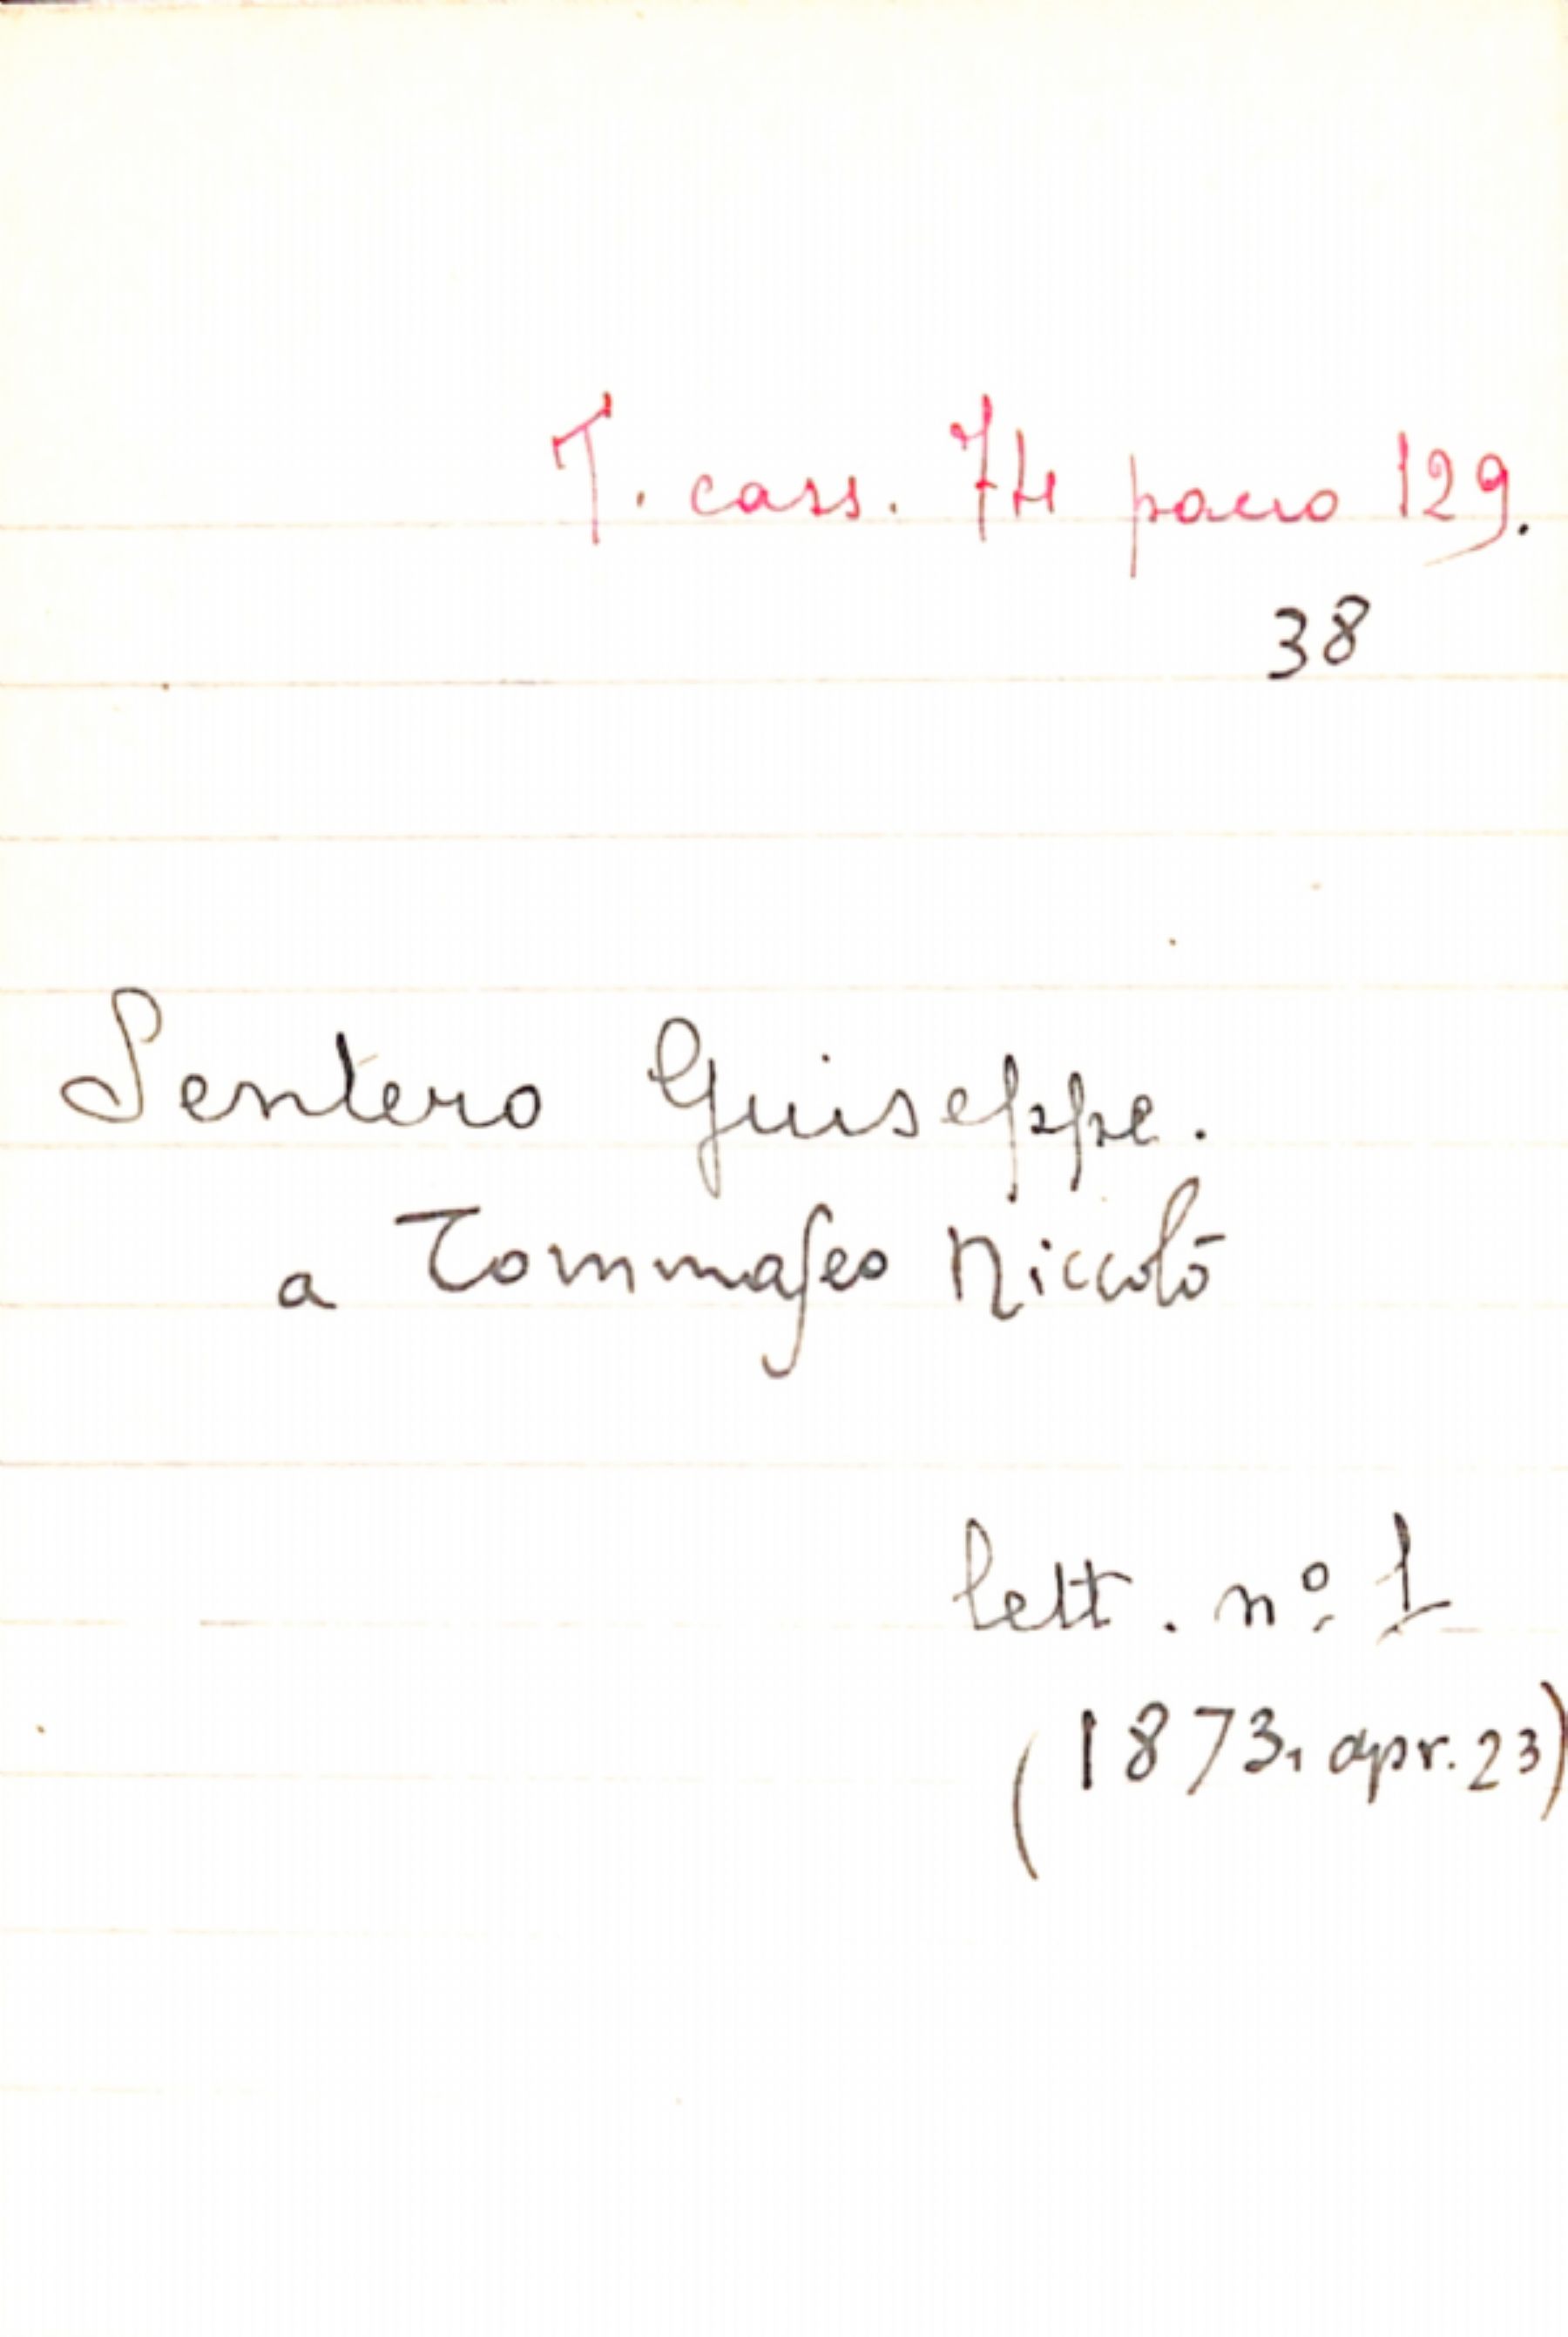 T. cass. 74 pacco 129.
38
Sentero Giuseppe.
a Tommaseo Niccolò
lett. nº 1
(1873, apr. 23)